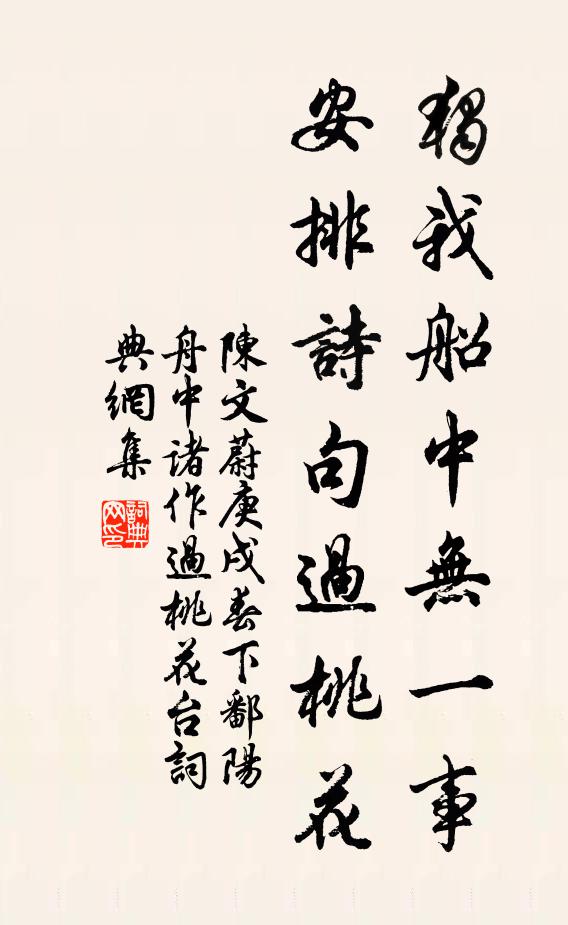 獨我船中無一事
安排詩句過桃花
陳文蔚庚戌春下鄱陽
舟中諸作過桃花台詞
典網集
詞典网印